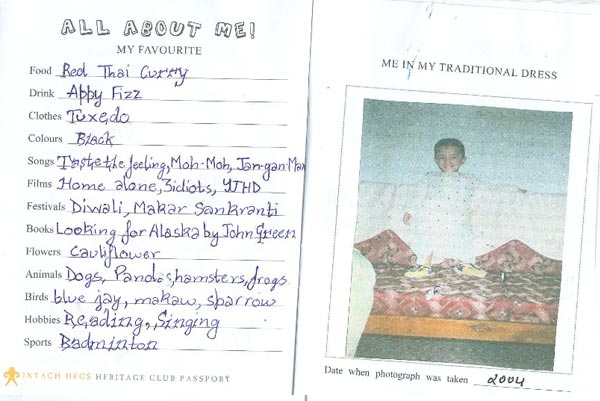 ALL ABOUT ME!
MY FAVOURITE
Food Red Thai Curry
Drink Appy Fizz
Clothes Tuxedo
Colours Black
Songs Taste the feeling, Moh-Moh, Jan-gan Man
Films Home alone, 3idiots, YJHD
Festivals Diwali, Makar Sankranti
Books Looking for Alaska by John Green
Flowers Cauliflower
Animals Dogs, Pandas, hamsters, frogs
Birds blue jay, makaw, sparrow
Hobbies Reading, Singing
Sports Badminton
INTACH HECS HERITAGE CLUB PASSPORT
ME IN MY TRADITIONAL DRESS
Date when photograph was taken 2004